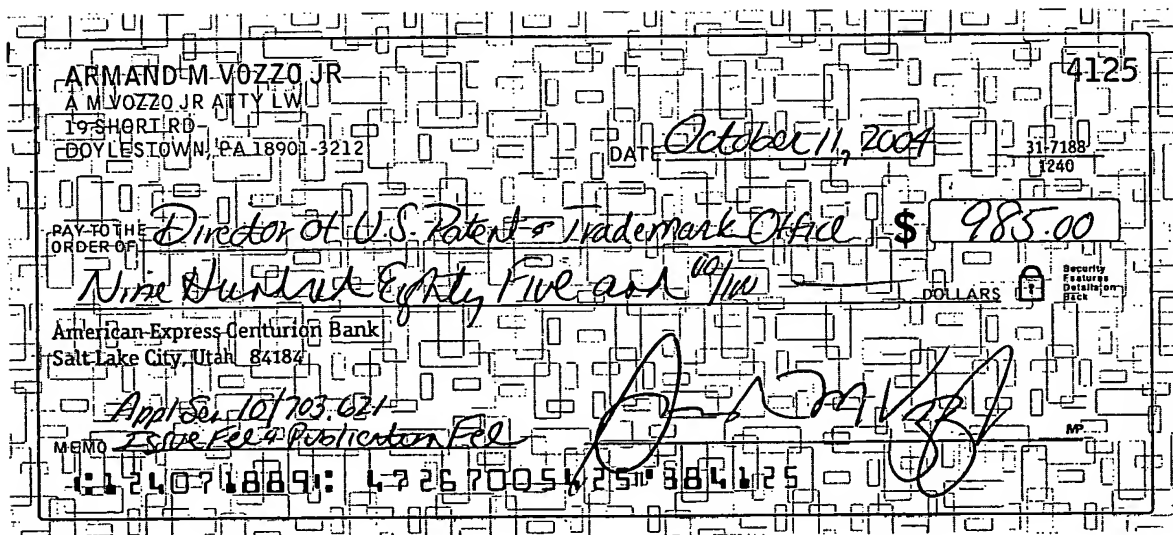 ARMAND M VOZZO JR
A M VOZZO JR ATTY LW
19 SHORT RD
DOYLESTOWN, PA 18901-3212
4125
DATE October 11, 2004
31-7188
1240
PAY TO THE
ORDER OF Director of U.S. Patent & Trademark Office $ 985.00
Nine Hundred Eighty Five and 00/100 DOLLARS
Security
Features
Details on
Back
American Express Centurion Bank
Salt Lake City, Utah 84184
Appl Ser 10/703,621
MEMO Issue Fee & Publication Fee
MP